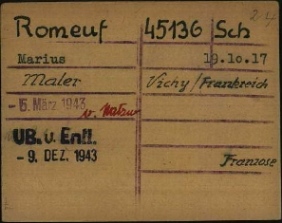 Romeuf 45136 Sch
Marius 19.10.17
Maler Vichy/Frankreich
- 5. März 1943 v. Natzw
UB. v. Entl.
- 9. DEZ. 1943 Franzose